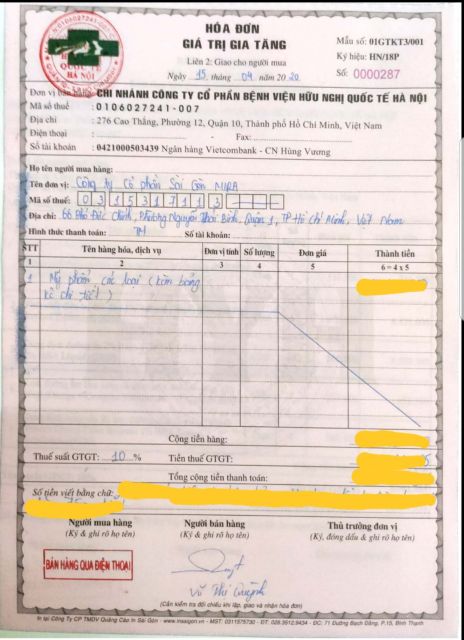 HÓA ĐƠN
GIÁ TRỊ GIA TĂNG
Liên 2: Giao cho người mua
Ngày 15 tháng 04 năm 2020
Mẫu số: 01GTKT3/001
Ký hiệu: HN/18P
Số: 0000287
QUỐC TẾ
HÀ NỘI
Đơn vị bán hàng: CHI NHÁNH CÔNG TY CỔ PHẦN BỆNH VIỆN HỮU NGHỊ QUỐC TẾ HÀ NỘI
Mã số thuế : 0106027241-007
Địa chỉ : 276 Cao Thắng, Phường 12, Quận 10, Thành phố Hồ Chí Minh, Việt Nam
Điện thoại : - Fax:
Số tài khoản : 0421000503439 Ngân hàng Vietcombank - CN Hùng Vương
Họ tên người mua hàng:
Tên đơn vị: Công ty Cổ phần Sài Gòn MIRA
Mã số thuế: 0315317113
Địa chỉ: 66 Phó Đức Chính, Phường Nguyễn Thái Bình, Quận 1, TP Hồ Chí Minh, Việt Nam
Hình thức thanh toán: TM Số tài khoản:
STT Tên hàng hóa, dịch vụ Đơn vị tính Số lượng Đơn giá Thành tiền
1 2 3 4 5 6 = 4 x 5
1 Mỹ phẩm các loại (kèm bảng
kê chi tiết)
Cộng tiền hàng:
Thuế suất GTGT: 10 % Tiền thuế GTGT:
Tổng cộng tiền thanh toán:
Số tiền viết bằng chữ:
Người mua hàng Người bán hàng Thủ trưởng đơn vị
(Ký & ghi rõ họ tên) (Ký & ghi rõ họ tên) (Ký, đóng dấu & ghi rõ họ tên)
BÁN HÀNG QUA ĐIỆN THOẠI
Võ Thị Quỳnh
(Cần kiểm tra đối chiếu khi lập, giao và nhận hóa đơn)
In tại Công Ty CP TMDV Quảng Cáo In Sài Gòn - www.insaigon.vn - MST: 0311575730 - ĐT: 028.3512.9434 - ĐC: 71 Đường Bạch Đằng, P.15, Bình Thạnh